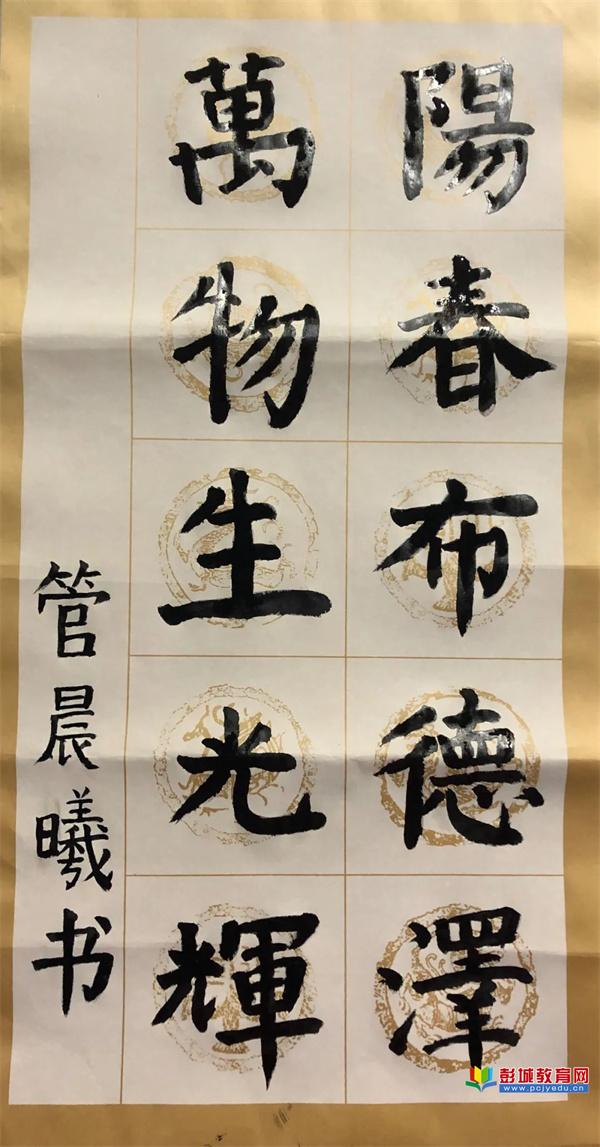 陽春布德澤
萬物生光輝
管晨曦书
彭城教育网
www.pcjyedu.cn